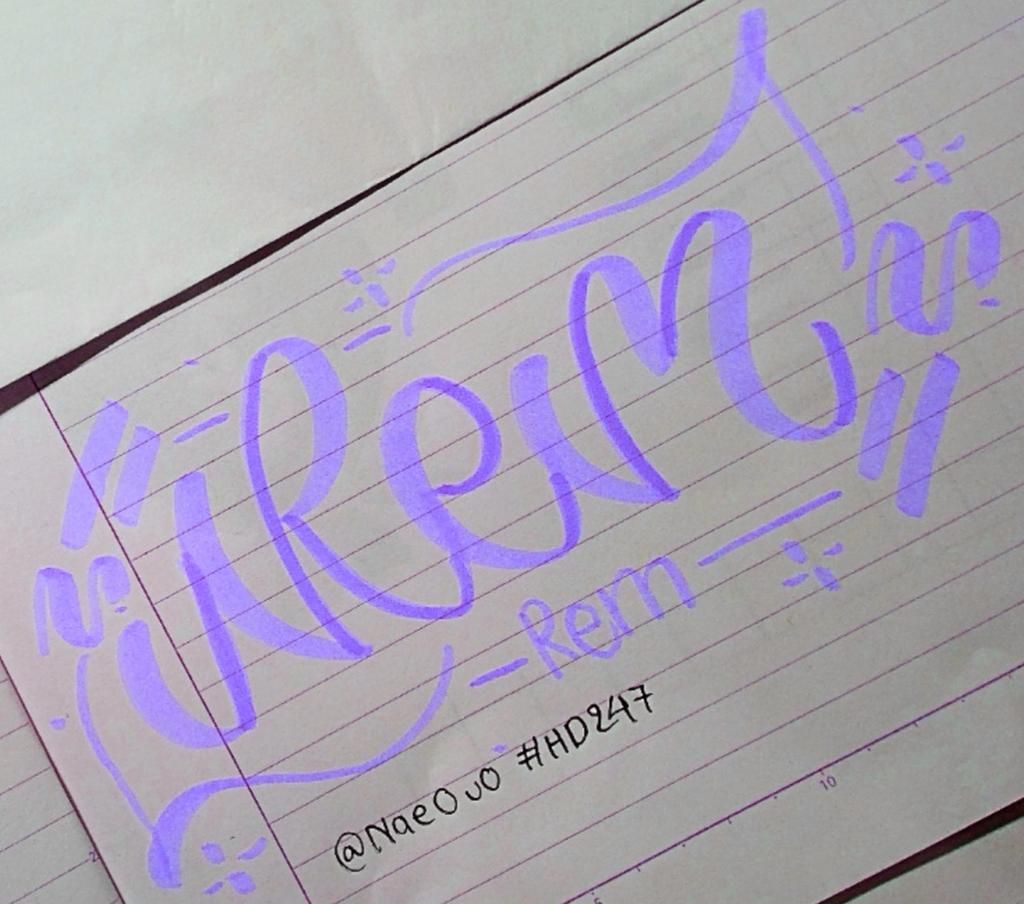 Rem
- Rem -
@NaeOJO #HD247
10